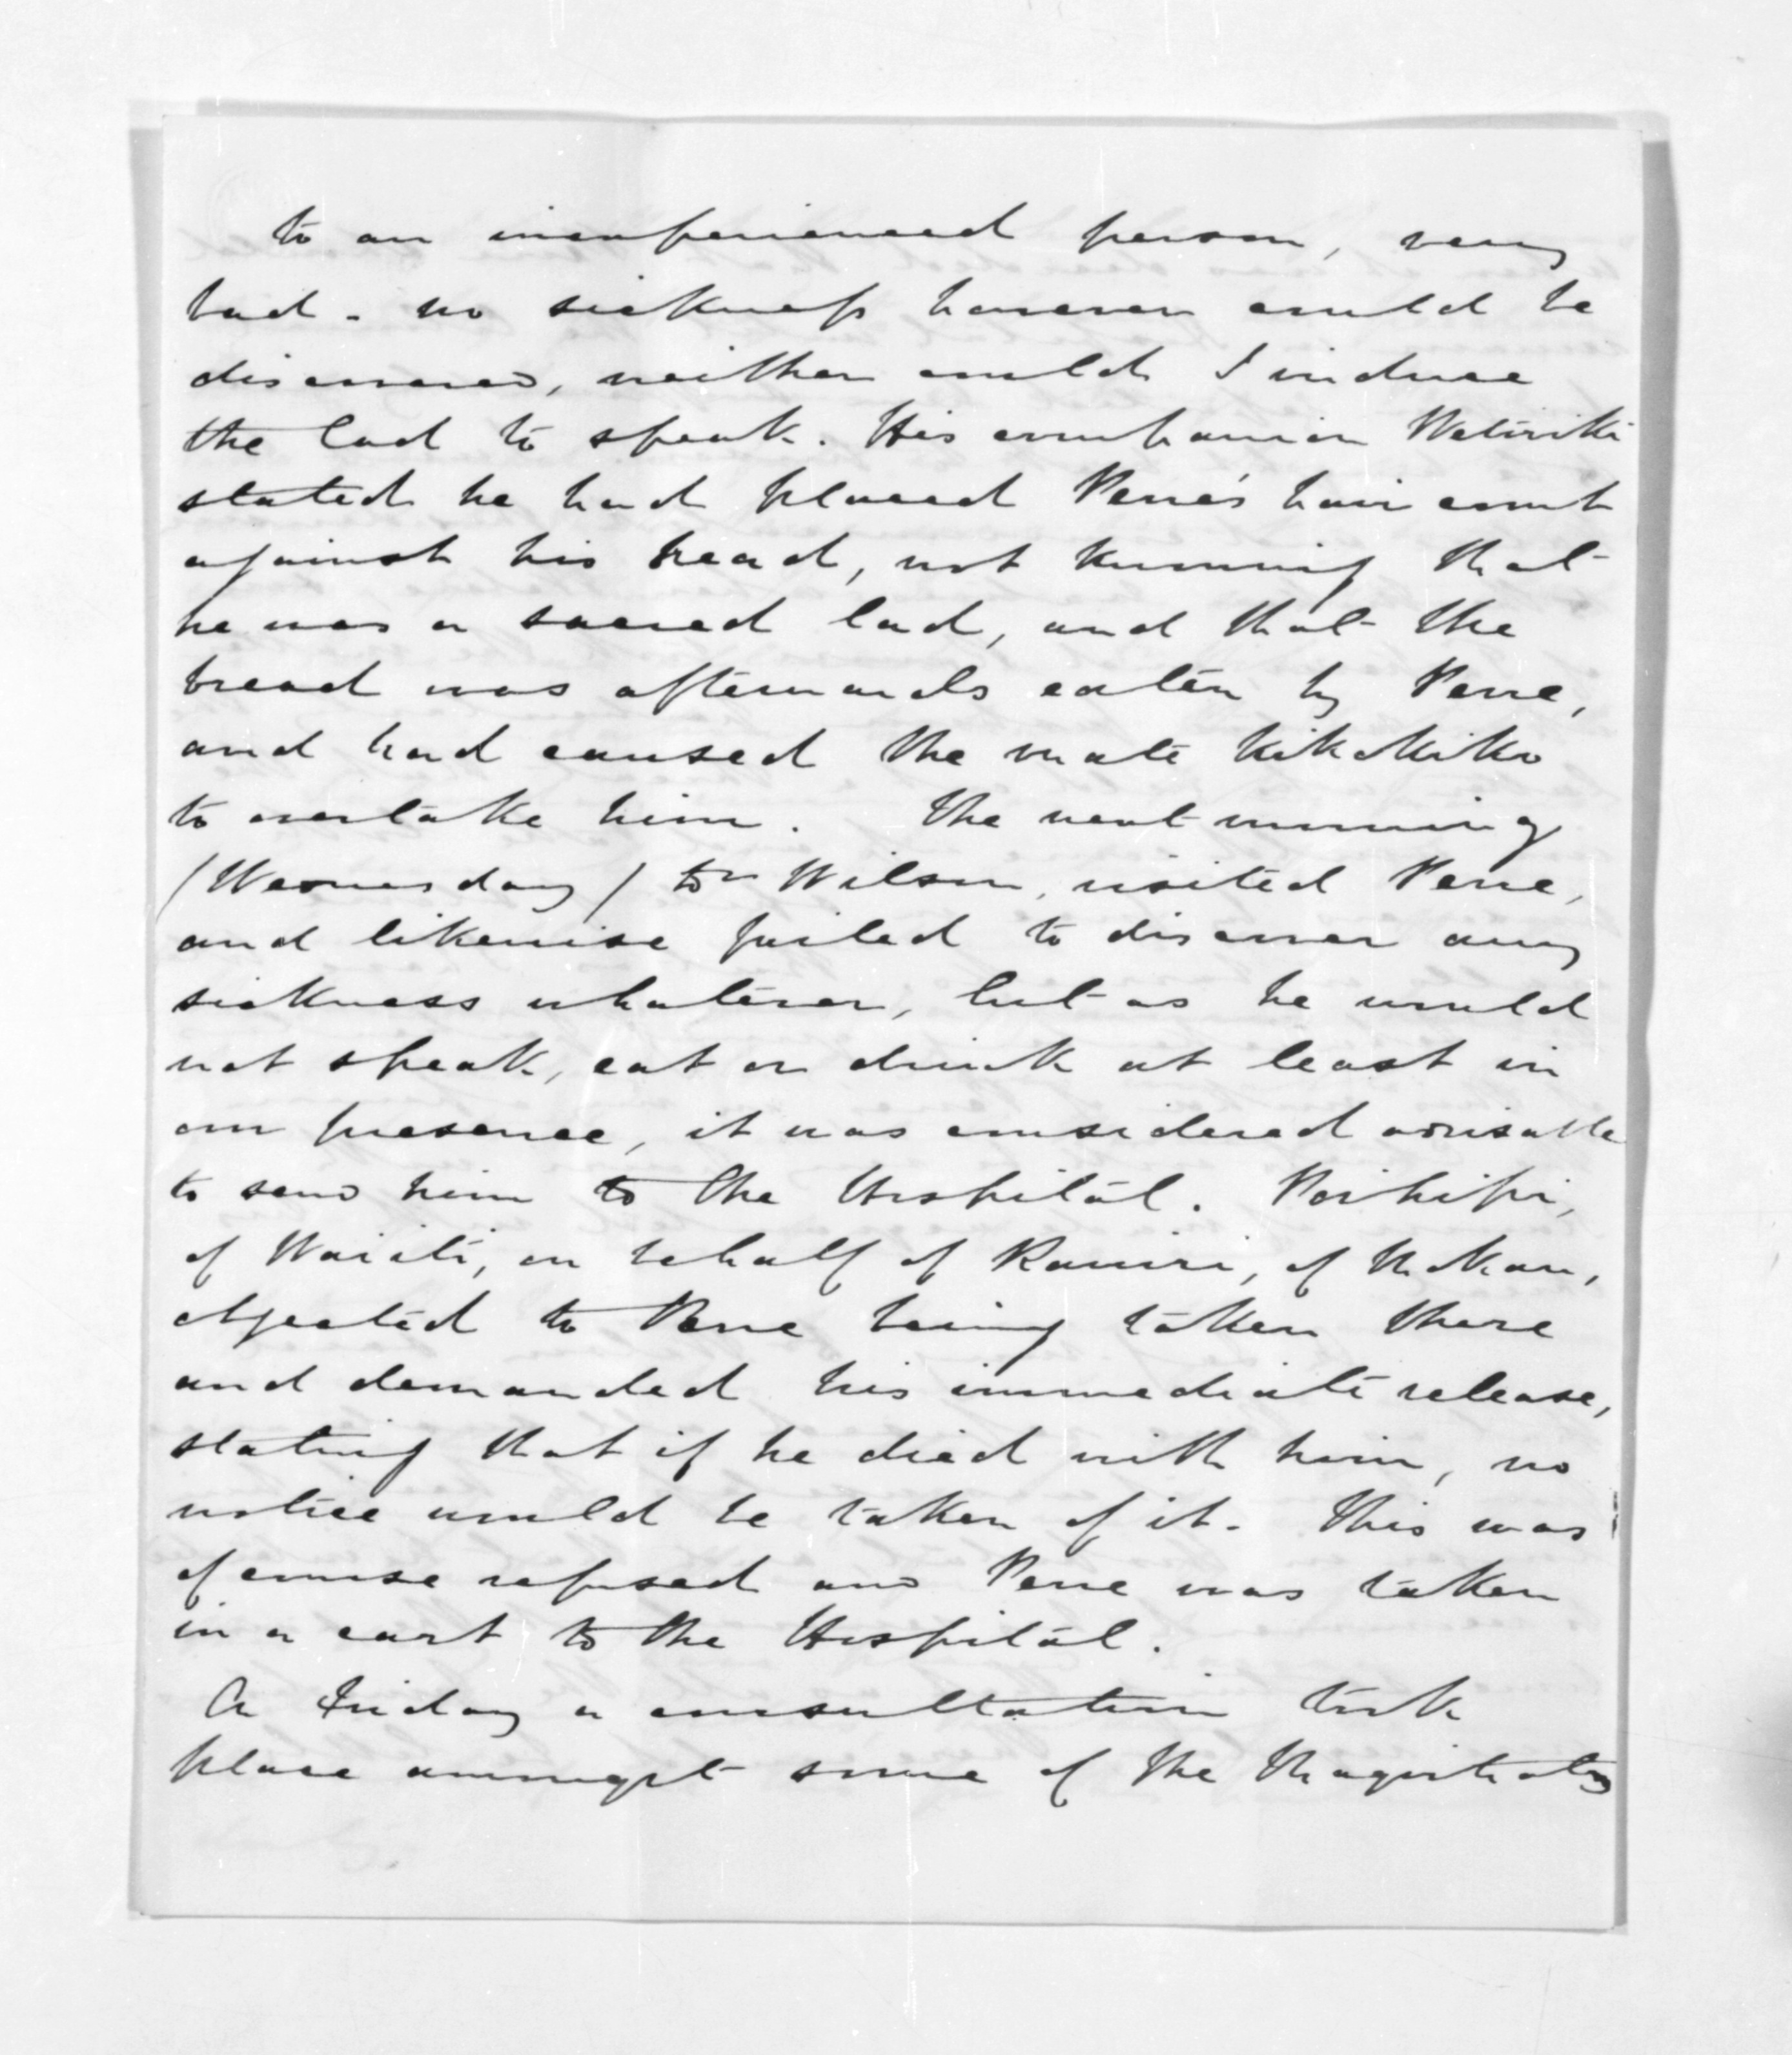 to an inexperienced person, very
bad - no sickness however could be
discovered, neither could I induce
the lad to speak. His companion Wetiriki
stated he had placed Pene's hair comb
against his bread, not knowing that
he was a sacred lad, and that the
bread was afterwards eaten by Pene,
and had caused the mate kikokiko
to overtake him. The next morning
(Wednesday) Dr Wilson, visited Pene,
and likewise failed to discover any
sickness whatever, but as he would
not speak, eat or drink at least in
our presence, it was considered advisable
to send him to the Hospital. Poihipi,
of Waiiti, on behalf of Rawiri, of Mokau,
objected to Pene being taken there
and demanded his immediate release,
stating that if he died with him, no
notice would be taken of it. This was
of course refused and Pene was taken
in a cart to the Hospital.
On Friday a consultation took
place amongst some of the Magistrates